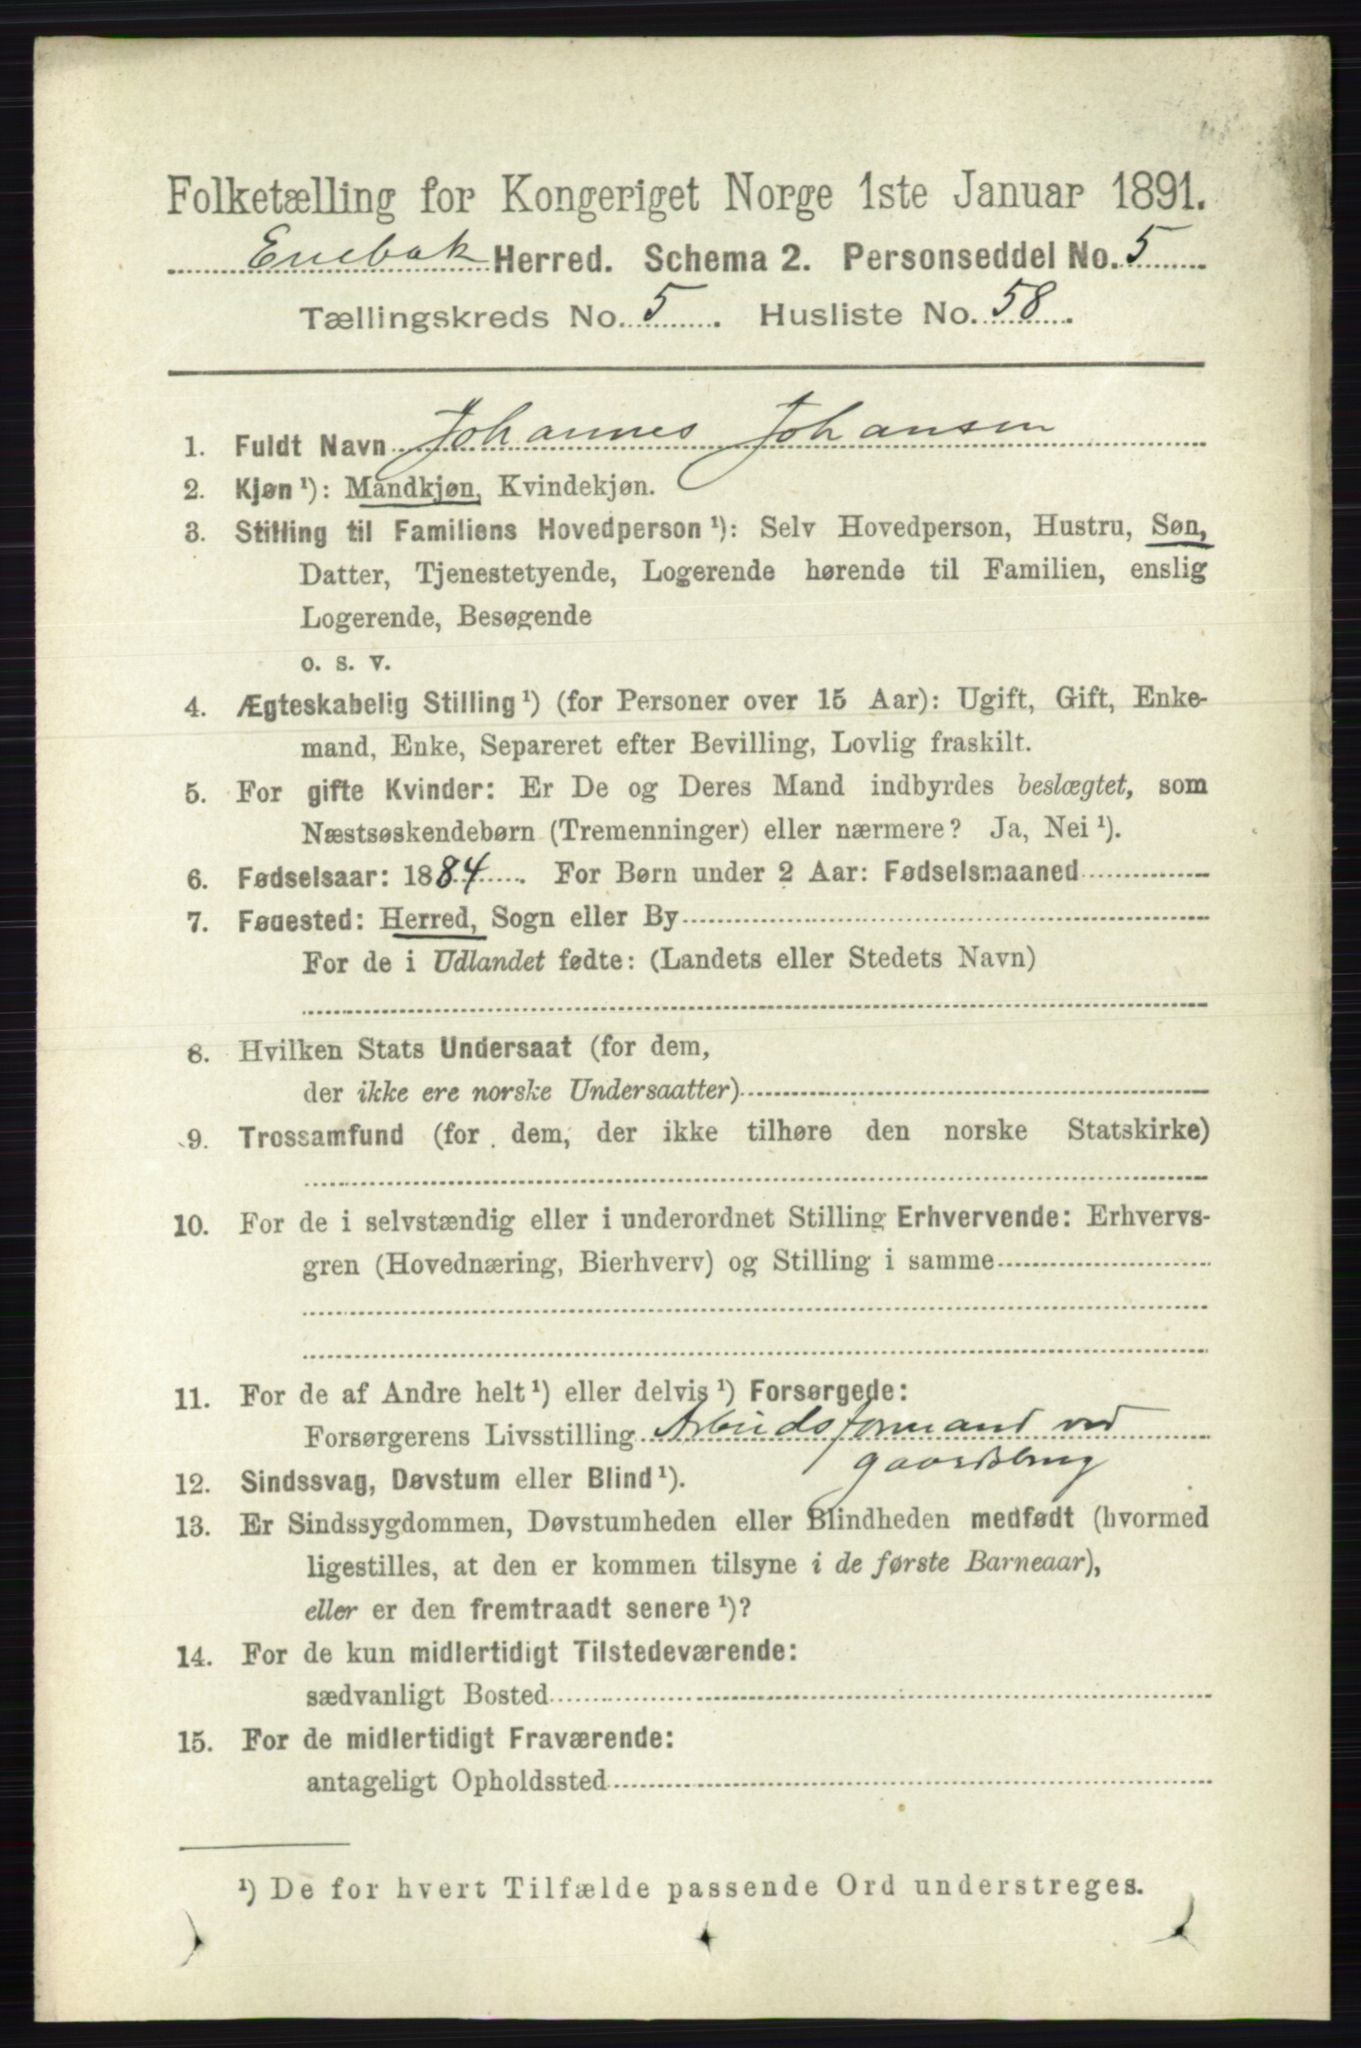 Folketælling for Kongeriget Norge 1ste Januar 1891.
Enebak Herred. Schema 2. Personseddel No. 5
Tællingskreds No. 5. Husliste No. 58.
1. Fuldt Navn Johannes Johansen
2. Kjøn ¹): Mandkjøn, Kvindekjøn.
3. Stilling til Familiens Hovedperson ¹): Selv Hovedperson, Hustru, Søn,
Datter, Tjenestetyende, Logerende hørende til Familien, enslig
Logerende, Besøgende
o. s. v.
4. Ægteskabelig Stilling ¹) (for Personer over 15 Aar): Ugift, Gift, Enke-
mand, Enke, Separeret efter Bevilling, Lovlig fraskilt.
5. For gifte Kvinder: Er De og Deres Mand indbyrdes beslægtet, som
Næstsøskendebørn (Tremenninger) eller nærmere? Ja, Nei ¹).
6. Fødselsaar: 1884. For Børn under 2 Aar: Fødselsmaaned
7. Fødested: Herred, Sogn eller By
For de i Udlandet fødte: (Landets eller Stedets Navn)
8. Hvilken Stats Undersaat (for dem,
der ikke ere norske Undersaatter)
9. Trossamfund (for dem, der ikke tilhøre den norske Statskirke)
10. For de i selvstændig eller i underordnet Stilling Erhvervende: Erhvervs-
gren (Hovednæring, Bierhverv) og Stilling i samme
11. For de af Andre helt ¹) eller delvis ¹) Forsørgede:
Forsørgerens Livsstilling Arbeidsformand ved
gaardsbrug
12. Sindssvag, Døvstum eller Blind ¹).
13. Er Sindssygdommen, Døvstumheden eller Blindheden medfødt (hvormed
ligestilles, at den er kommen tilsyne i de første Barneaar),
eller er den fremtraadt senere ¹)?
14. For de kun midlertidigt Tilstedeværende:
sædvanligt Bosted
15. For de midlertidigt Fraværende:
antageligt Opholdssted
¹) De for hvert Tilfælde passende Ord understreges.